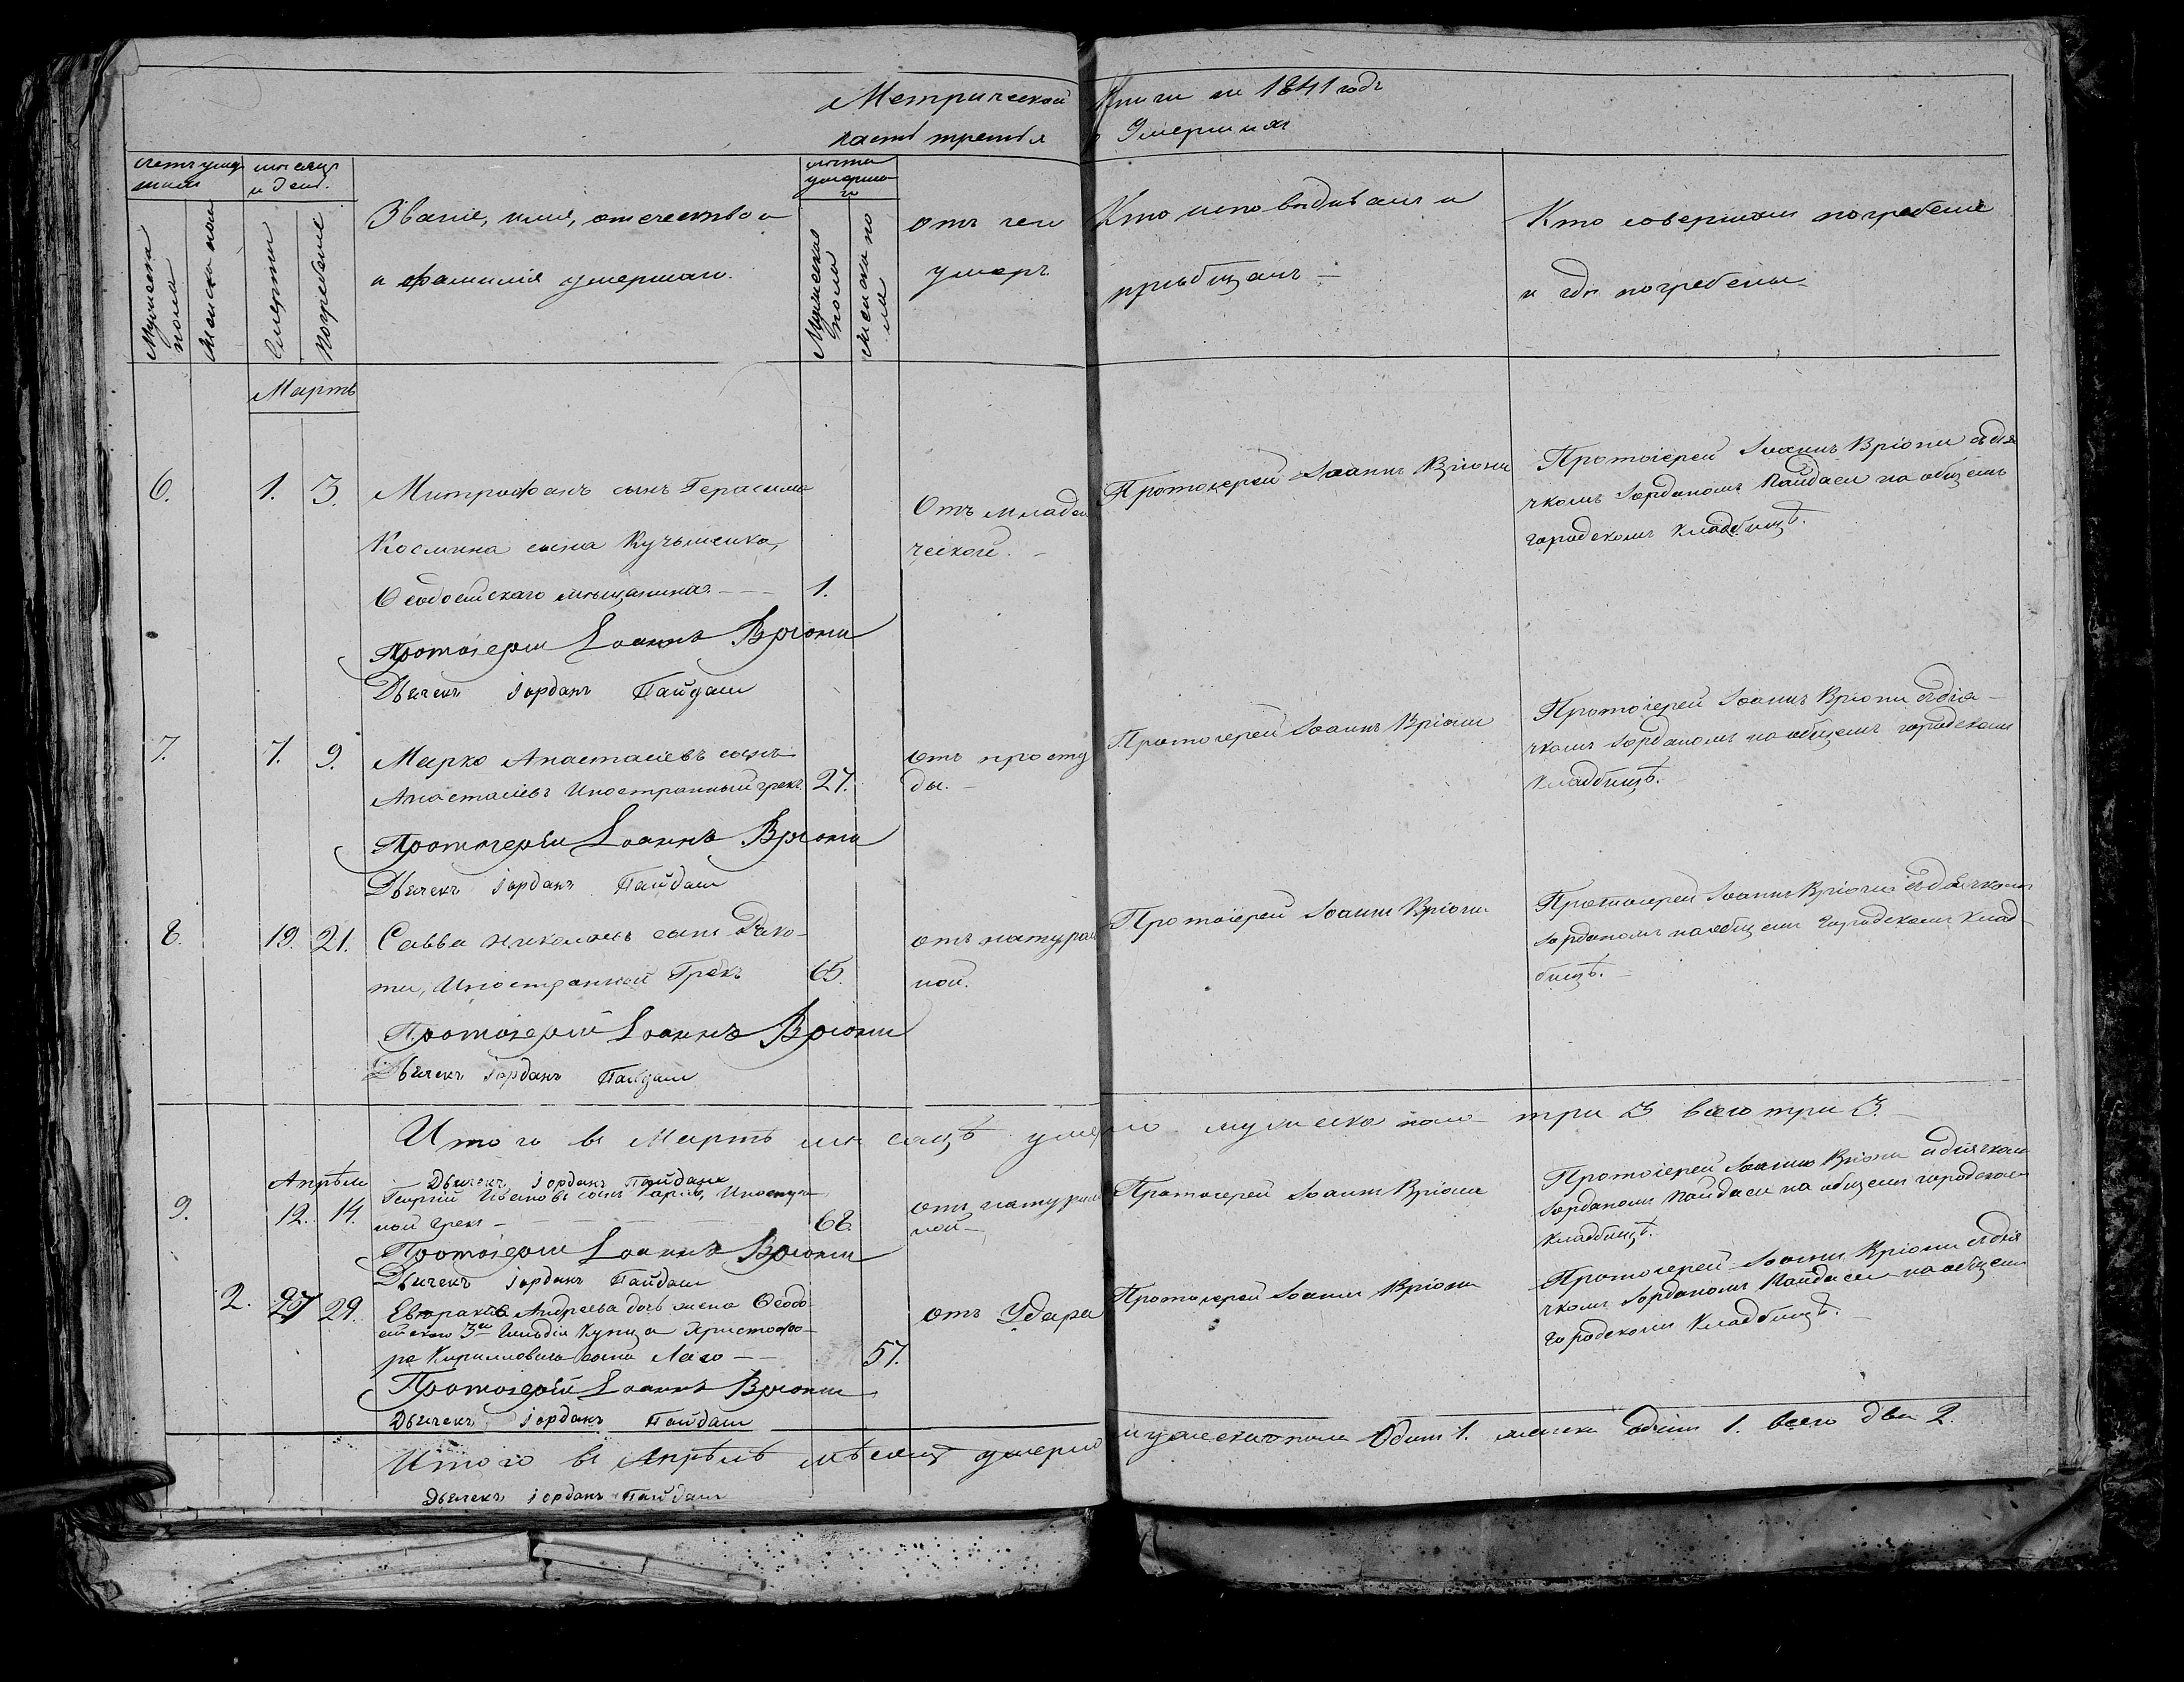 Метрической Книги на 1841 годъ
часть третья о Умершихъ
Счетъ умер
шихъ
мѣсяцъ
и день.
Званіе, имя, отечество и
и фамилія умершаго.
лѣта
умерша
го
отъ чего
умеръ.
Кто исповѣдывалъ и
пріобщалъ —
Кто совершалъ погребеніе
и гдѣ погребены
Мужеска
пола
Женска пола
Смерти
Погребеніе
Мужеска
пола
Женска по
ла
Мартъ
6. 1. 3. Митрофанъ сынъ Герасима
Космина сына
Ѳеодосійскаго мѣщанина. — — 1.
Отъ младен
ческой. —
Протоіерей Іоаннъ Вріони
Протоіерей Іоаннъ Вріони съ дья
чкомъ Іорданомъ Пайдаси на общемъ
городскомъ кладбищѣ.
Протоіерей Іоаннъ Вріони
Дьячекъ Іорданъ Пайдаси
7. 7. 9. Марко Анастасіевъ сынъ
Анастасіевъ Иностранный грекъ. 27.
отъ просту
ды. —
Протоіерей Іоаннъ Вріони
Протоіерей Іоаннъ Вріони съ дья-
чкомъ Іорданомъ на общемъ городскомъ
кладбищѣ.
Протоіерей Іоаннъ Вріони
Дьячекъ Іорданъ Пайдаси
8. 19. 21. Савва Николаевъ сынъ Дако-
ти, Иностранной Грекъ 65.
отъ натураль
ной.
Протоіерей Іоаннъ Вріони
Протоіерей Іоаннъ Вріони съ дьячкомъ
Іорданомъ на общемъ Городскомъ Клад-
бищѣ. —
Протоіерей Іоаннъ Вріони
Дьячекъ Іорданъ Пайдаси
Итого въ Мартѣ мѣсяцѣ умерло мужеска пола три 3 всего три 3. —
Дьячекъ Іорданъ Пайдаси
Апрѣль
9. 12. 14. Георгій Ивановъ сынъ Иностран
ной грекъ — — — 68.
отъ натураль
ной —
Протоіерей Іоаннъ Вріони
Протоіерей Іоаннъ Вріони съ дьячкомъ
Іорданомъ Пайдаси на общемъ городскомъ
кладбищѣ.
Протоіерей Іоаннъ Вріони
Дьячекъ Іорданъ Пайдаси
2. 27 29. Андреева дочь жена Ѳеодо-
сійского 3ей Гильдіи Купца Христофо-
ра Кирилловича сына — — 57.
отъ Удара
Протоіерей Іоаннъ Вріони
Протоіерей Іоаннъ Вріони съ дья
чкомъ Іорданомъ Пайдаси на общемъ
городскомъ Кладбищѣ.
Протоіерей Іоаннъ Вріони
Дьячекъ Іорданъ Пайдаси
Итого въ Апрѣлѣ мѣсяцѣ умерло мужеска пола Одинъ 1. женска одинъ 1. всего два 2.
Дьячекъ Іорданъ Пайдаси